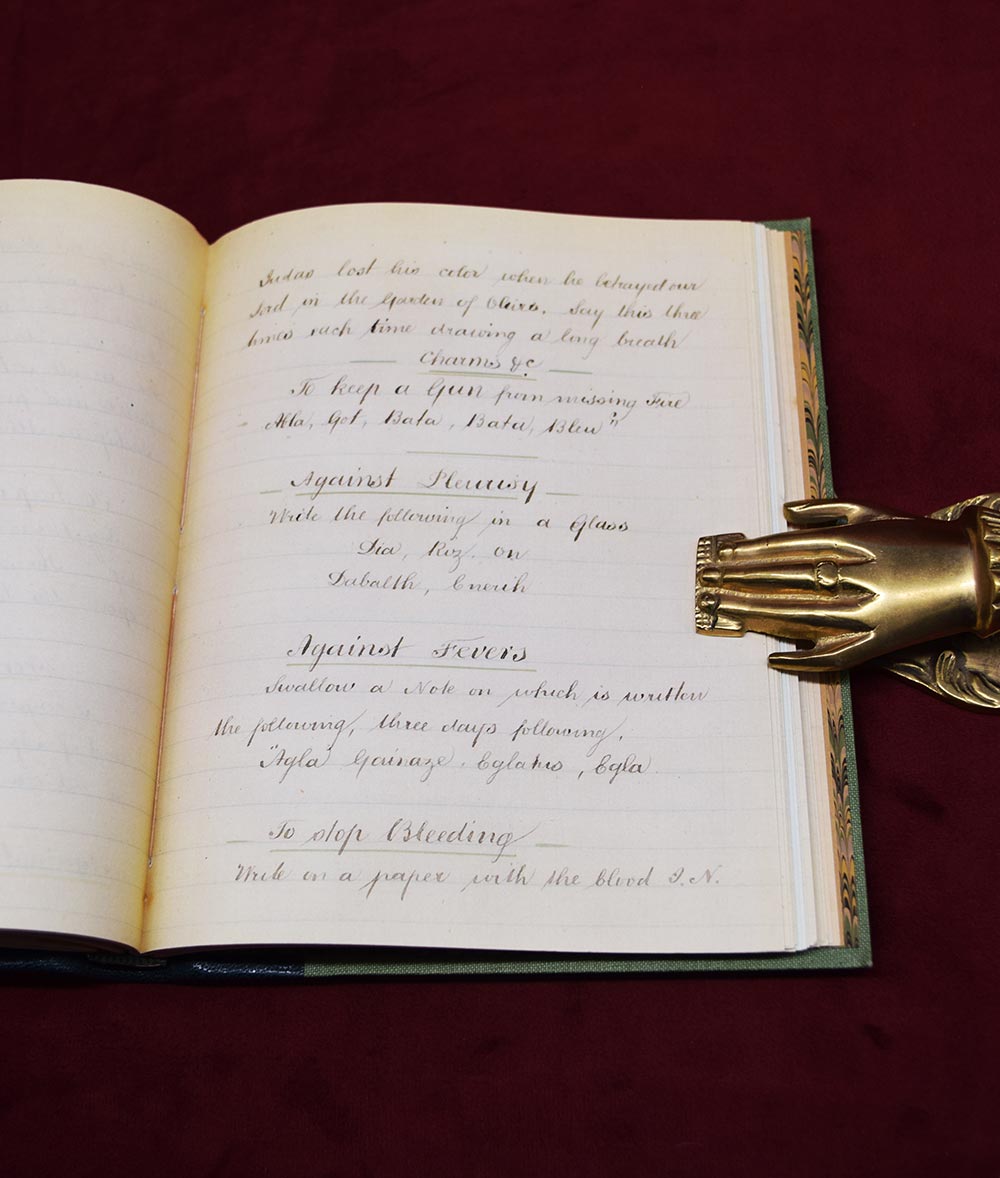 Judas lost his color when he betrayed our
Lord in the Garden of Olives. Say this three
times each time drawing a long breath
Charms &c
To keep a Gun from missing Fire
Abla, Got, Bata, Bata, Bleu"
Against Pleurisy
Write the following in a Glass
Dia, Roz, on
Dabalth, Enerih
Against Fevers
Swallow a Note on which is written
the following, three days following.
"Agla Gainaze Eglatus, Egla
To stop Bleeding
Write on a paper with the blood I. N.